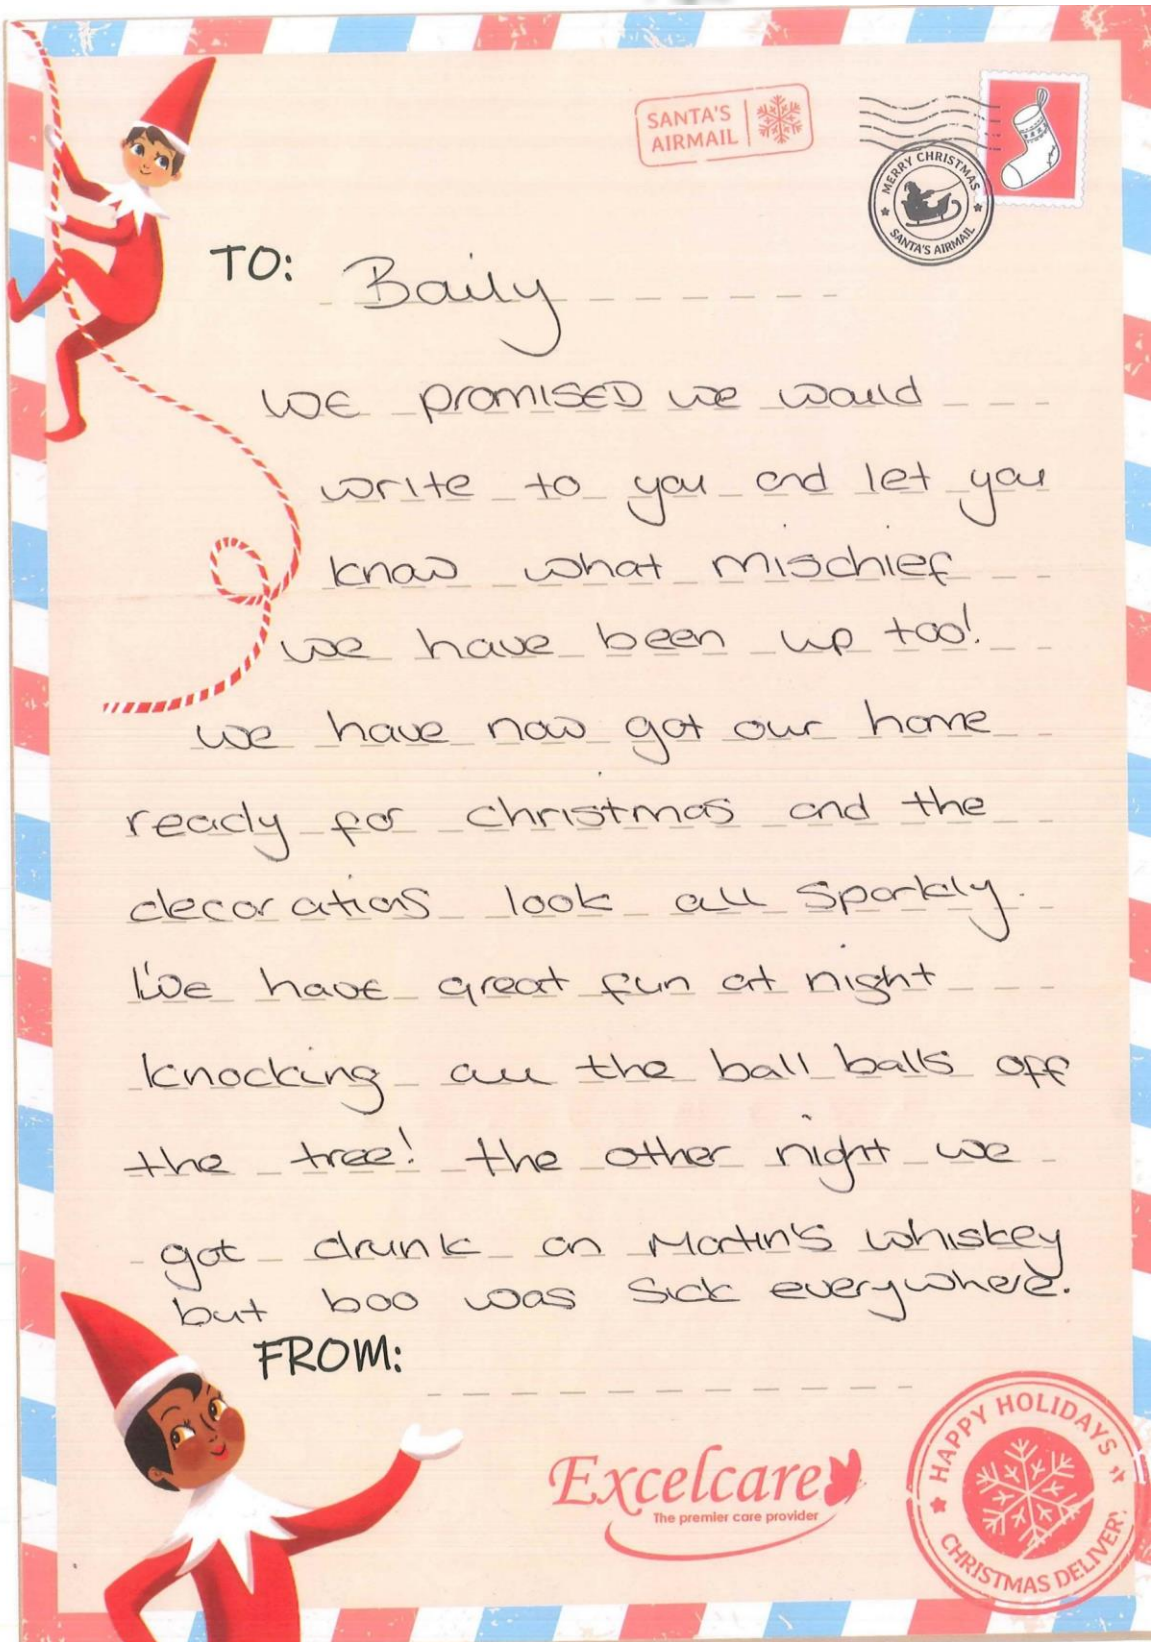 SANTA'S
AIRMAIL
MERRY CHRISTMAS
SANTA'S AIRMAIL
TO: Baily
WE promisED we would
write to you and let you
know what mischief
we have been up too!
we have now got our home
ready for christmas and the
decorations look all sparkly.
We have great fun at night
knocking all the ball balls off
the tree! the other night we
got drunk on Martin's whiskey
but boo was sick everywhere.
FROM:
HAPPY HOLIDAYS
CHRISTMAS DELIVERY
Excelcare
The premier care provider